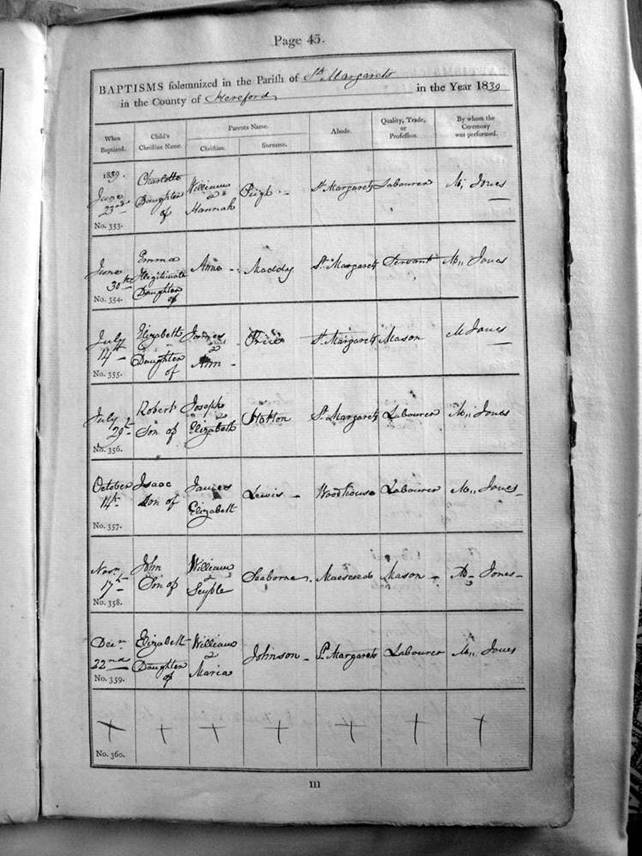 Page 45.
BAPTISMS solemnized in the Parish of St. Margarets
in the County of Hereford in the Year 1839
When Baptized. Child's Christian Name. Parents Name. Christian. Surname. Abode. Quality, Trade, or Profession. By whom the Ceremony was performed.
1839. June 23rd No. 353. Charlotte Daughter of William & Hannah St. Margarets Labourer M. Jones
June 30th No. 354. Emma Illegitimate Daughter of Anna Maddy St. Margarets Servant M. Jones
July 14th No. 355. Elizabeth Daughter of James & Ann Price St. Margarets Mason M Jones
July 29th No. 356. Robert Son of Joseph & Elizabeth St. Margarets Labourer M. Jones
October 14th No. 357. Isaac Son of James & Elizabeth Lewis Woodhouse Labourer M. Jones
Novr. 17th No. 358. John Son of William & Seaborne Mason Jones
Decr. 22nd No. 359. Elizabeth Daughter of William & Maria Johnson St. Margarets Labourer M. Jones
No. 360.
III